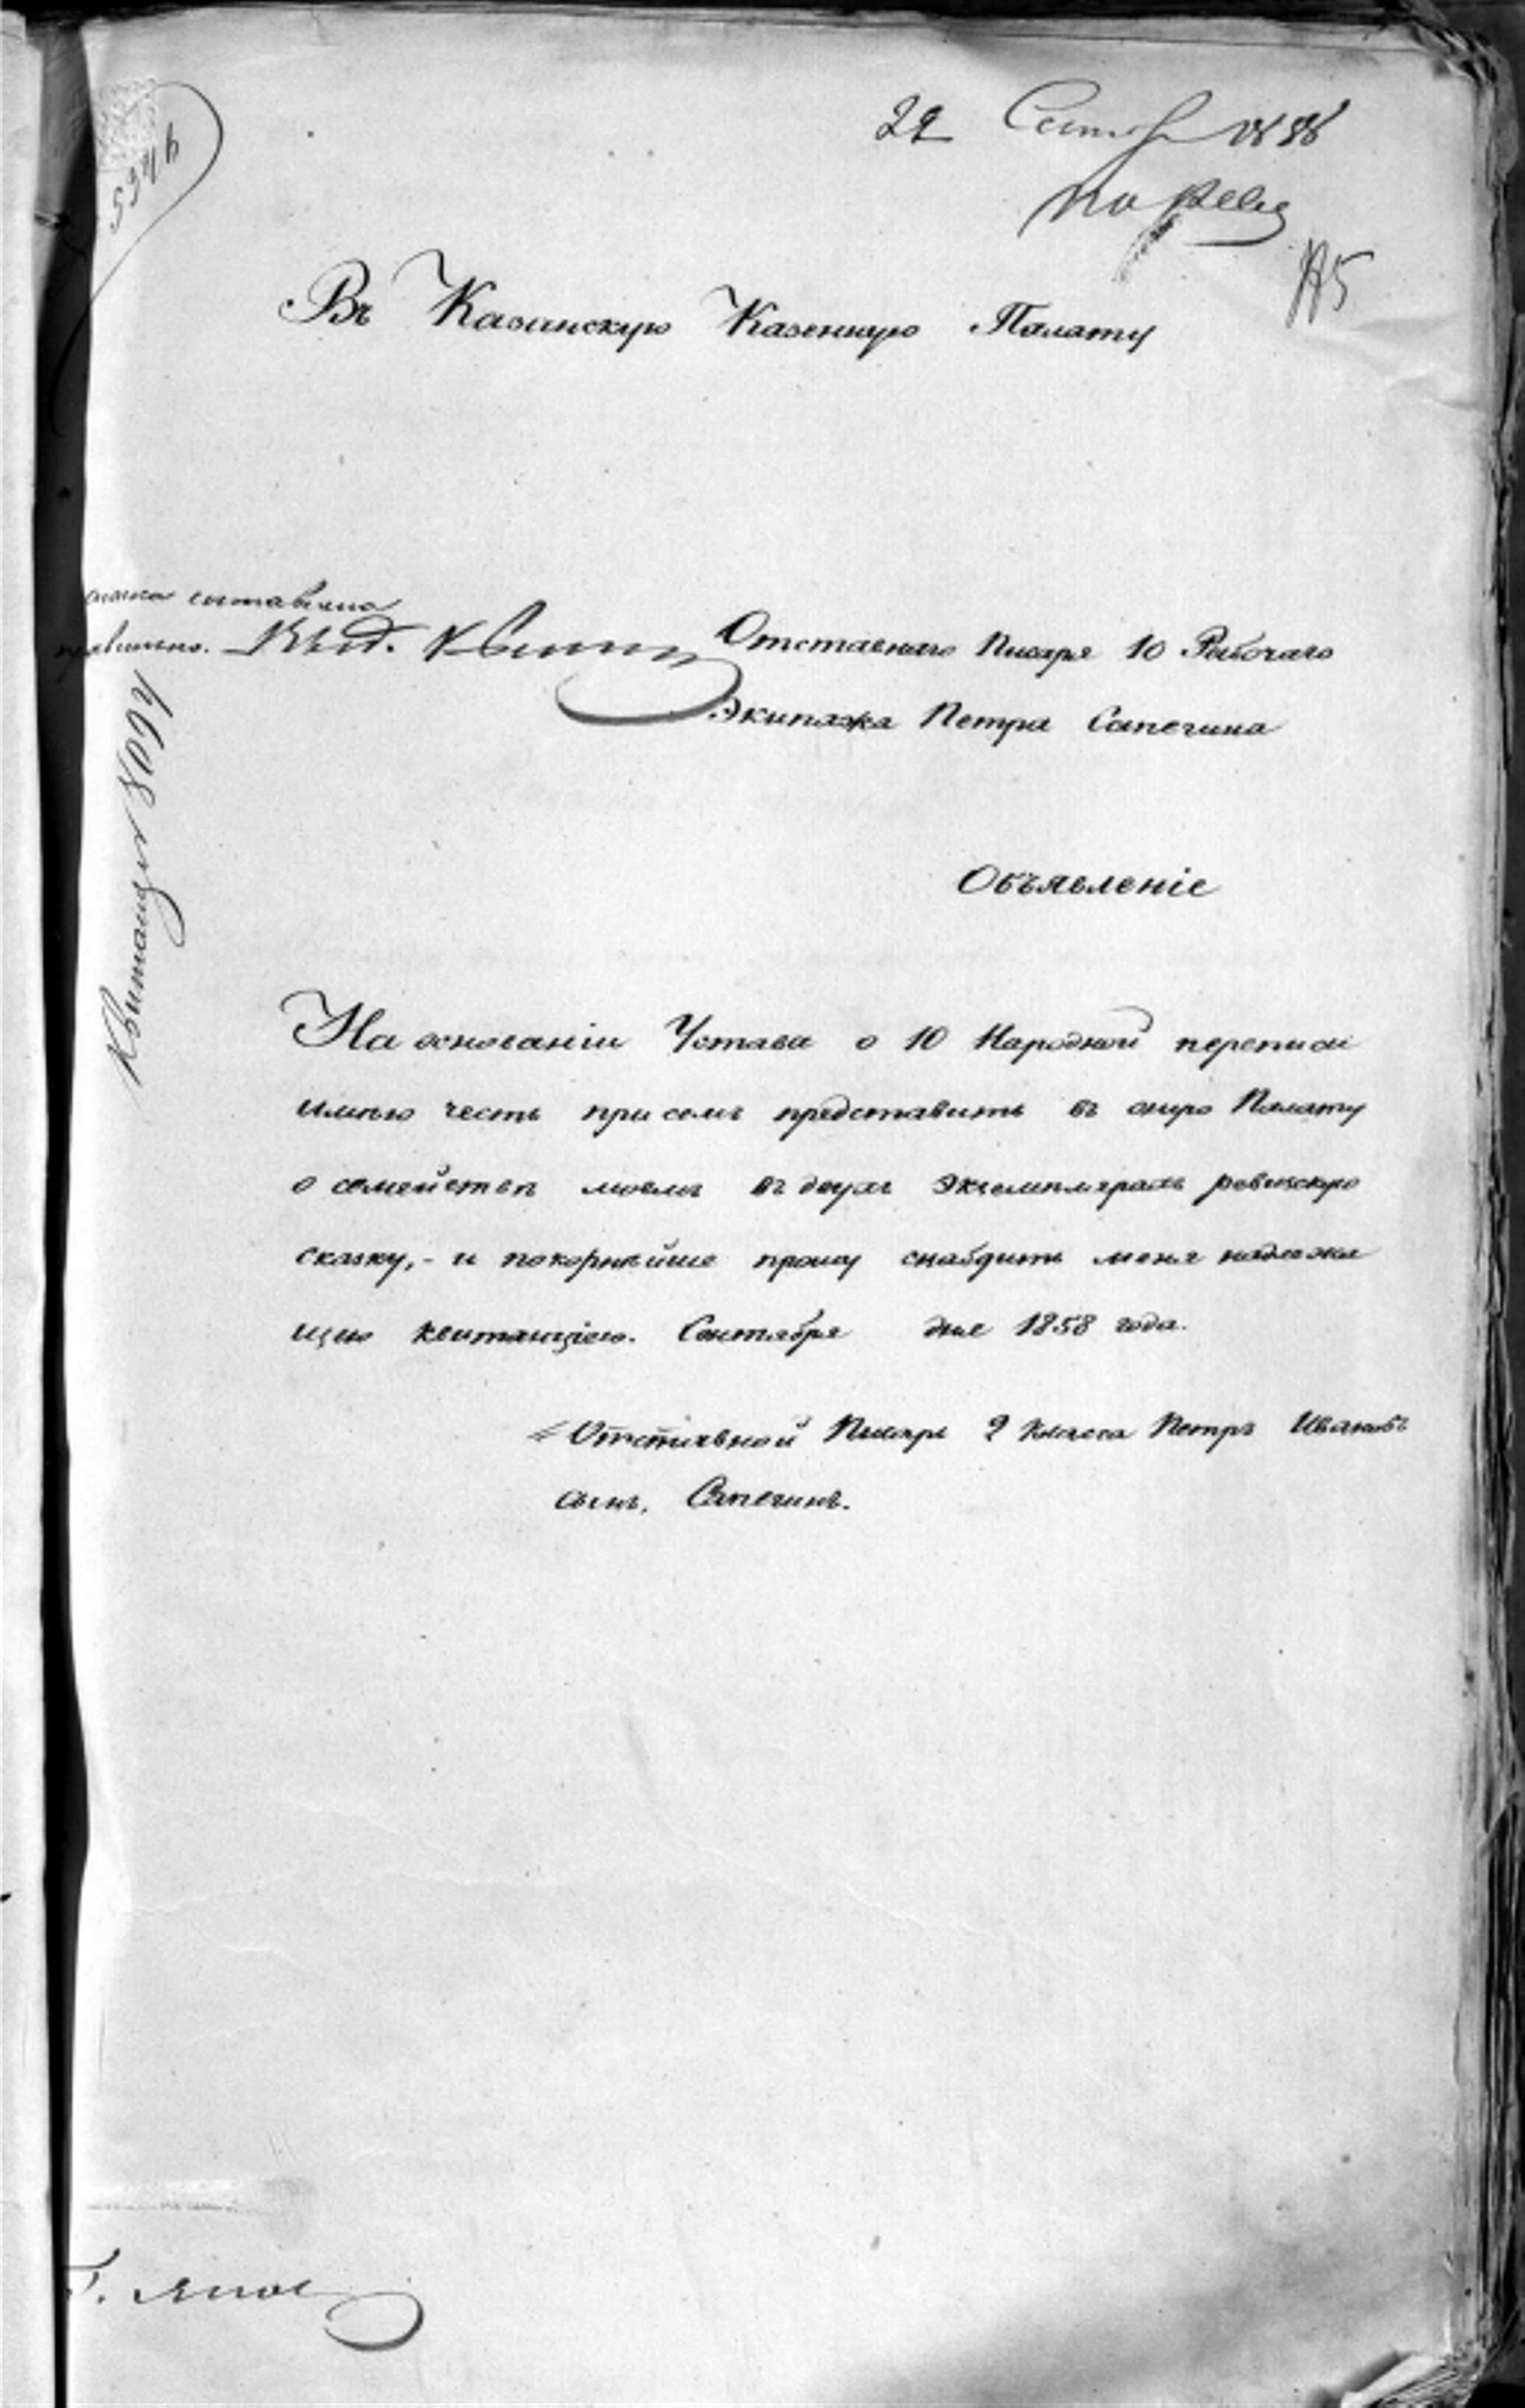 5346
22 Сентяб 1858
по Реви
115
Въ Казанскую Казенную Палату
составлена
правильно.
Отставнаго Писаря 10 Рабочаго
Экипажа Петра Сапегина
Квитанц 8094
Объявленіе
На основаніи Устава о 10 Народной переписи
имѣю честь при семъ представить въ оную Палату
о семействѣ моемъ въ двухъ экземплярахъ ревизскую
сказку,- и покорнѣйше прошу снабдить меня надлежа
щею квитанціею. Сентября дня 1858 года.
Отставной Писарь 2 класса Петръ Ивановъ
сынъ, Сапегинъ.